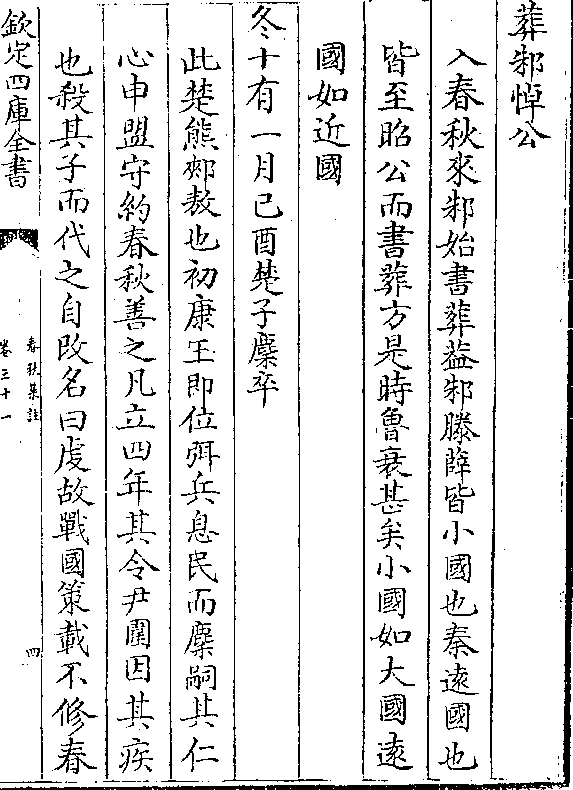 葬邾悼公
入春秋來邾始書葬葢邾滕薛皆小國也秦逺國也
皆至昭公而書葬方是時魯衰甚矣小國如大國逺
國如近國
冬十有一月己酉楚子麇卒
此楚熊郟敖也初康王即位弭兵息民而麇嗣其仁
心申盟守約春秋善之凡立四年其令尹圍因其疾
也殺其子而代之自改名曰虔故戰國策載不修春
欽定四庫全書
春秋集註
卷三十一
四